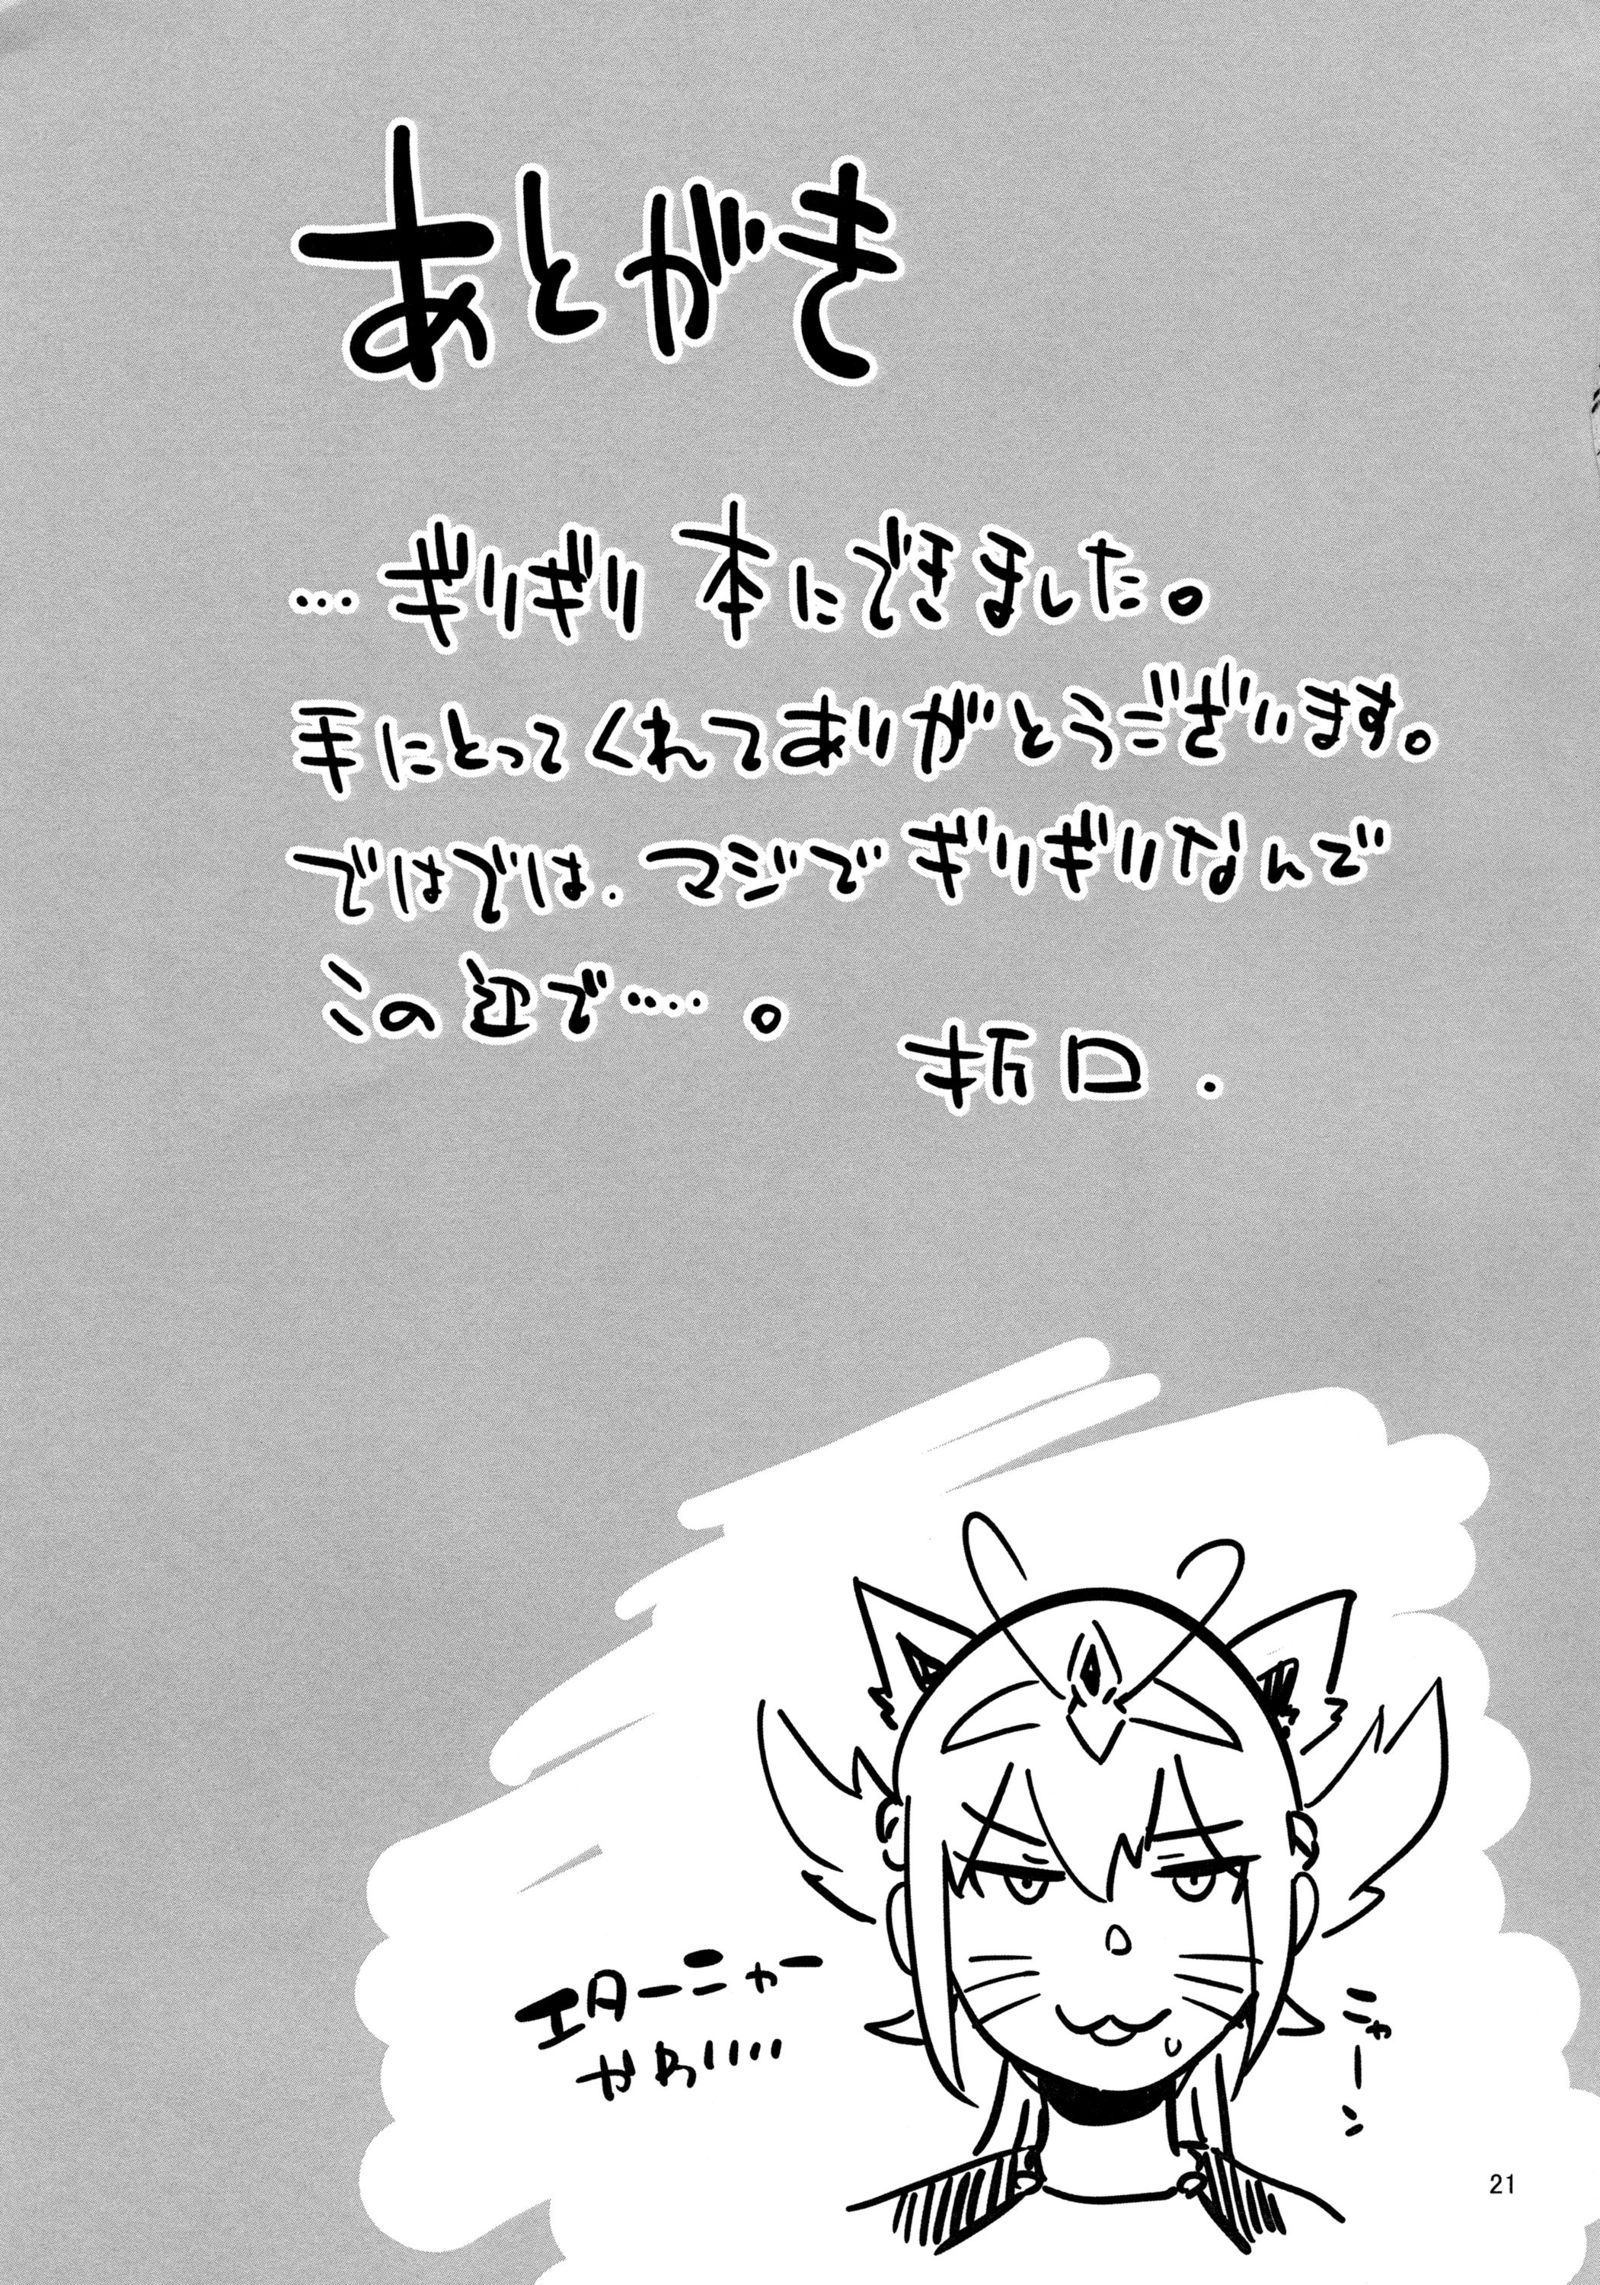 あとがき
…ギリギリ 本にできました。
手にとってくれてありがとうございます。
ではでは、マジでギリギリなんで
この辺で‥‥。
折口.
エターニャー
かわいい…
ニャーン
21